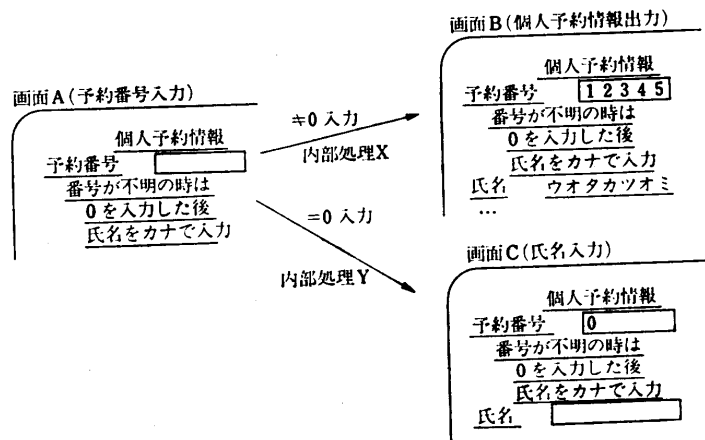 画面A(予約番号入力)
個人予約情報
予約番号
番号が不明の時は
0を入力した後
氏名をカナで入力
≠0 入力
内部処理X
=0 入力
内部処理Y
画面B(個人予約情報出力)
個人予約情報
予約番号 12345
番号が不明の時は
0を入力した後
氏名をカナで入力
氏名 ウオタカツオミ
…
画面C(氏名入力)
個人予約情報
予約番号 0
番号が不明の時は
0を入力した後
氏名をカナで入力
氏名